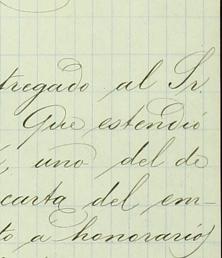 tregado al Sr.
Que estendió
, uno del de
carta del em-
to a honorarios